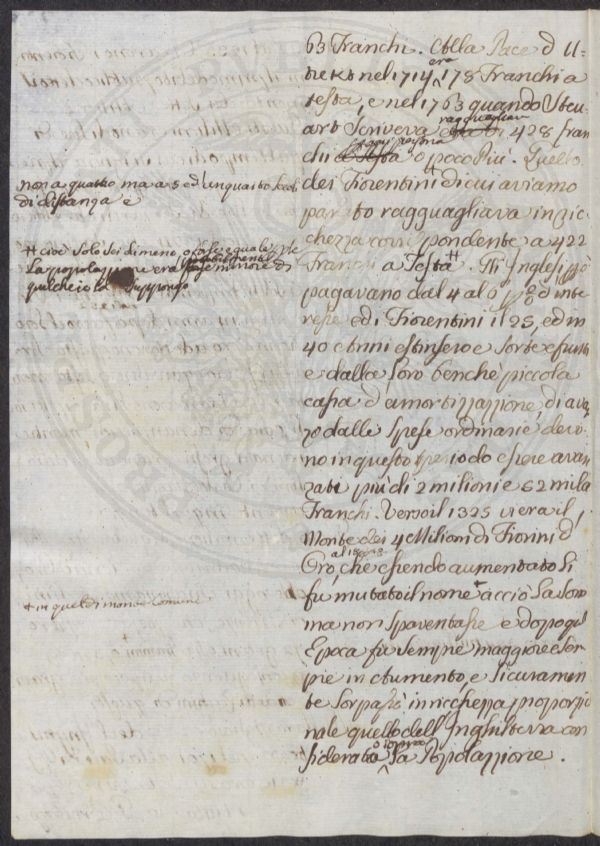 63 Franchi. Colla Pace d'U=
treckt nel 1714 era 178 Franchi a
testa, e nel 1763 quando Steu=
art Scriveva ragguagliava 428 fran
chi per ogni persona o poco Più. Quello
dei Fiorentini di cui aviamo
parlato ragguagliava in ric
chezza corrispondente a 422
Franchi a Testa ++. Gl'Inglesi
pagavano dal 4 al 6 p% d'inte
resse ed i Fiorentini il 25, ed in
40 e Anni estinsero e Sorte e frutti
e dalla loro benchè piccola
cassa d'amortizzazzione, di avan
zo dalle Spese ordinarie devo=
no in questo Periodo essere avan
zati più di 2 milioni e 62 mila
Franchi. Verso il 1325 vi era il
Monte dei 4 Milioni di Fiorini d'
Oro, che essendo aumentato si
fu mutato il nome + acciò la Som
ma non Spaventasse e dopo quell'
Epoca fu sempre maggiore e sem
pre in Aumento, e Sicuramen
te Sorpassò in ricchezza proporzio
nale quello dell'Inghilterra con
siderata la Popolazzione.
non a quattro ma a 5 ed un quarto Secoli
di distanza e
++ cioè Solo Sei di meno, o forse eguale
La popolazzione era probabilmente minore di
quel che io la Suppongo
+ in quel di monte comune